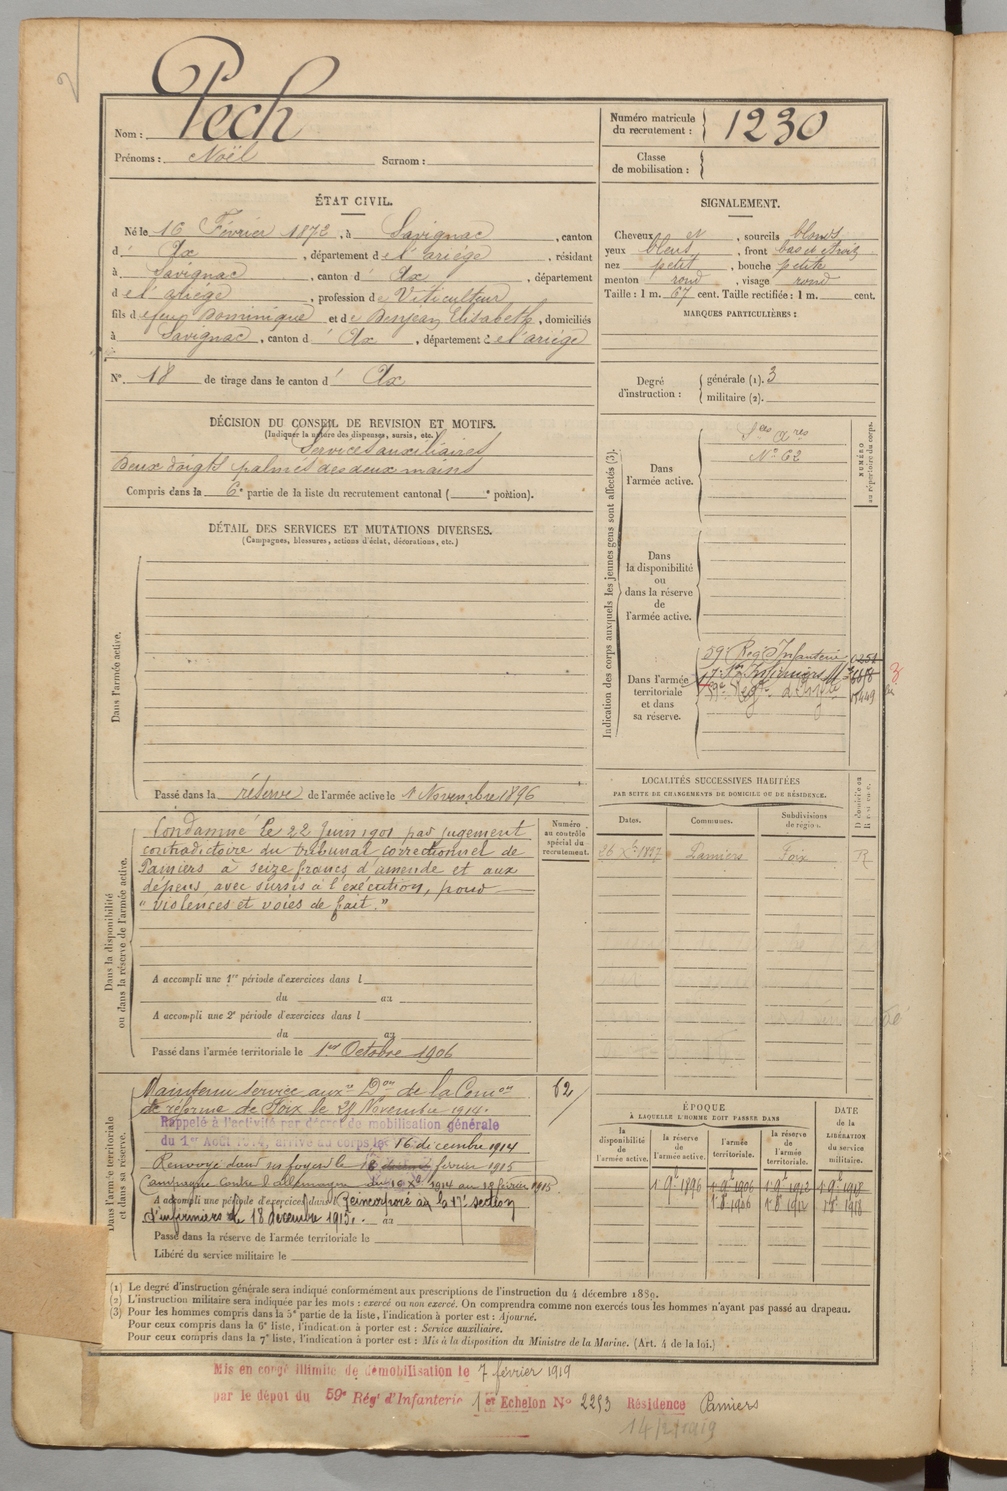 Nom : Pech
Prénoms : Noël Surnom :
Numéro matricule du recrutement : 1230
Classe de mobilisation :
ÉTAT CIVIL.
Né le 16 Février 1872, à Savignac, canton
d' Ax, département de l'ariége, résidant
à Savignac, canton d' Ax, département
de l'ariége, profession de Viticulteur,
fils de feu Dominique et de Benjean Elisabeth, domiciliés
à Savignac, canton d' Ax, département de l'ariége
N° 18 de tirage dans le canton d' Ax
SIGNALEMENT.
Cheveux N, sourcils blonds
yeux bleus, front bas et étroit
nez petit, bouche petite
menton rond, visage rond
Taille : 1 m. 67 cent. Taille rectifiée : 1 m. cent.
MARQUES PARTICULIÈRES :
Degré d'instruction : générale (1). 3
militaire (2).
DÉCISION DU CONSEIL DE REVISION ET MOTIFS.
(Indiquer la nature des dispenses, sursis, etc.)
Services auxiliaires
Deux doigts palmés des deux mains
Compris dans la 6e partie de la liste du recrutement cantonal ( e portion).
DÉTAIL DES SERVICES ET MUTATIONS DIVERSES.
(Campagnes, blessures, actions d'éclat, décorations, etc.)
Dans l'armée active.
Passé dans la réserve de l'armée active le 1 Novembre 1896
Indication des corps auxquels les jeunes gens sont affectés (3).
NUMÉRO au répertoire du corps.
Dans l'armée active.
Sces Ares
N° 62
Dans la disponibilité ou dans la réserve de l'armée active.
Dans l'armée territoriale et dans sa réserve.
59 Reg d'Infanterie
17e Son Infirmiers M
3
LOCALITÉS SUCCESSIVES HABITÉES
PAR SUITE DE CHANGEMENTS DE DOMICILE OU DE RÉSIDENCE.
Dates. Communes. Subdivisions de région.
26 Xbre 1897 Pamiers Foix R
Dans la disponibilité ou dans la réserve de l'armée active.
Numéro au contrôle spécial du recrutement.
Condamné le 22 Juin 1901 par jugement
contradictoire du tribunal correctionnel de
Pamiers à seize francs d'amende et aux
dépens avec sursis à l'exécution, pour
"violences et voies de fait."
A accompli une 1re période d'exercices dans l
du au
A accompli une 2e période d'exercices dans l
du au
Passé dans l'armée territoriale le 1er Octobre 1906
Dans l'armée territoriale et dans sa réserve.
Maintenu service auxre Don de la Comon
de réforme de Foix le 21 Novembre 1914.
62
Rappelé à l'activité par décret de mobilisation générale
du 1er Août 1914, arrivé au corps le 16 décembre 1914
Renvoyé dans ses foyers le 18 février 1915
Campagne contre l'Allemagne du 16 Xbre 1914 au 18 février 1915.
A accompli une période d'exercices dans l Réincorporé à la 17e section
d'infirmiers le 18 décembre 1915. au
Passé dans la réserve de l'armée territoriale le
Libéré du service militaire le
ÉPOQUE
À LAQUELLE L'HOMME DOIT PASSER DANS
la disponibilité de l'armée active. la réserve de l'armée active. l'armée territoriale. la réserve de l'armée territoriale.
DATE de la LIBÉRATION du service militaire.
1 9e 1896 1 9e 1906 1 9e 1912 1 9e 1918
1 8 1906 1 8 1912 1 8 1918
(1) Le degré d'instruction générale sera indiqué conformément aux prescriptions de l'instruction du 4 décembre 1889.
(2) L'instruction militaire sera indiquée par les mots : exercé ou non exercé. On comprendra comme non exercés tous les hommes n'ayant pas passé au drapeau.
(3) Pour les hommes compris dans la 5e partie de la liste, l'indication à porter est : Ajourné.
Pour ceux compris dans la 6e liste, l'indication à porter est : Service auxiliaire.
Pour ceux compris dans la 7e liste, l'indication à porter est : Mis à la disposition du Ministre de la Marine. (Art. 4 de la loi.)
Mis en congé illimité de démobilisation le 7 février 1919
par le dépôt du 59e Régt d'Infanterie 1er Echelon N° 2253 Résidence Pamiers